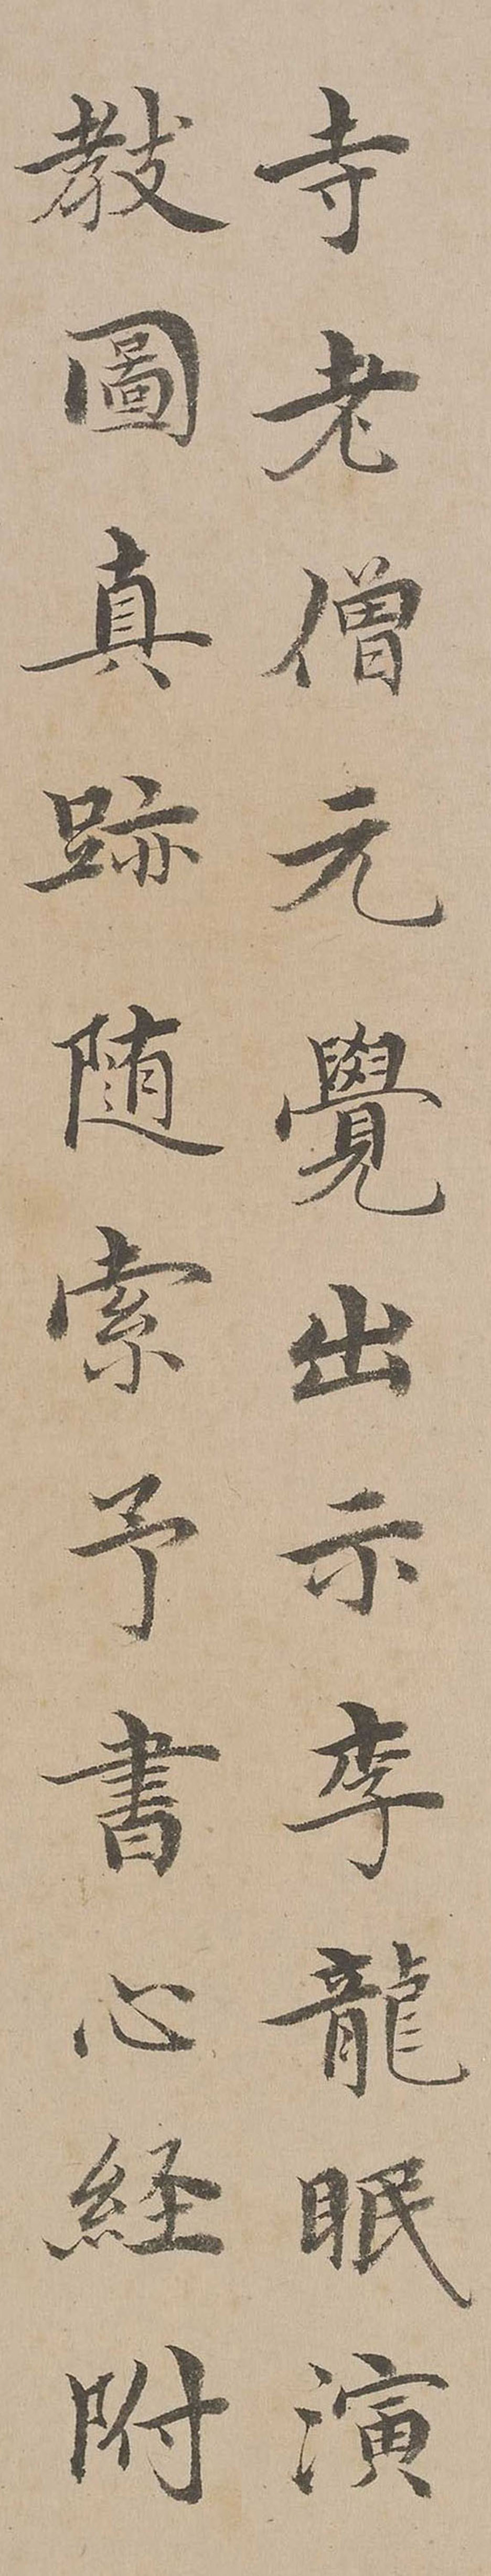 寺老僧元覺出示李龍眠演
教圖真跡随索予書心経附